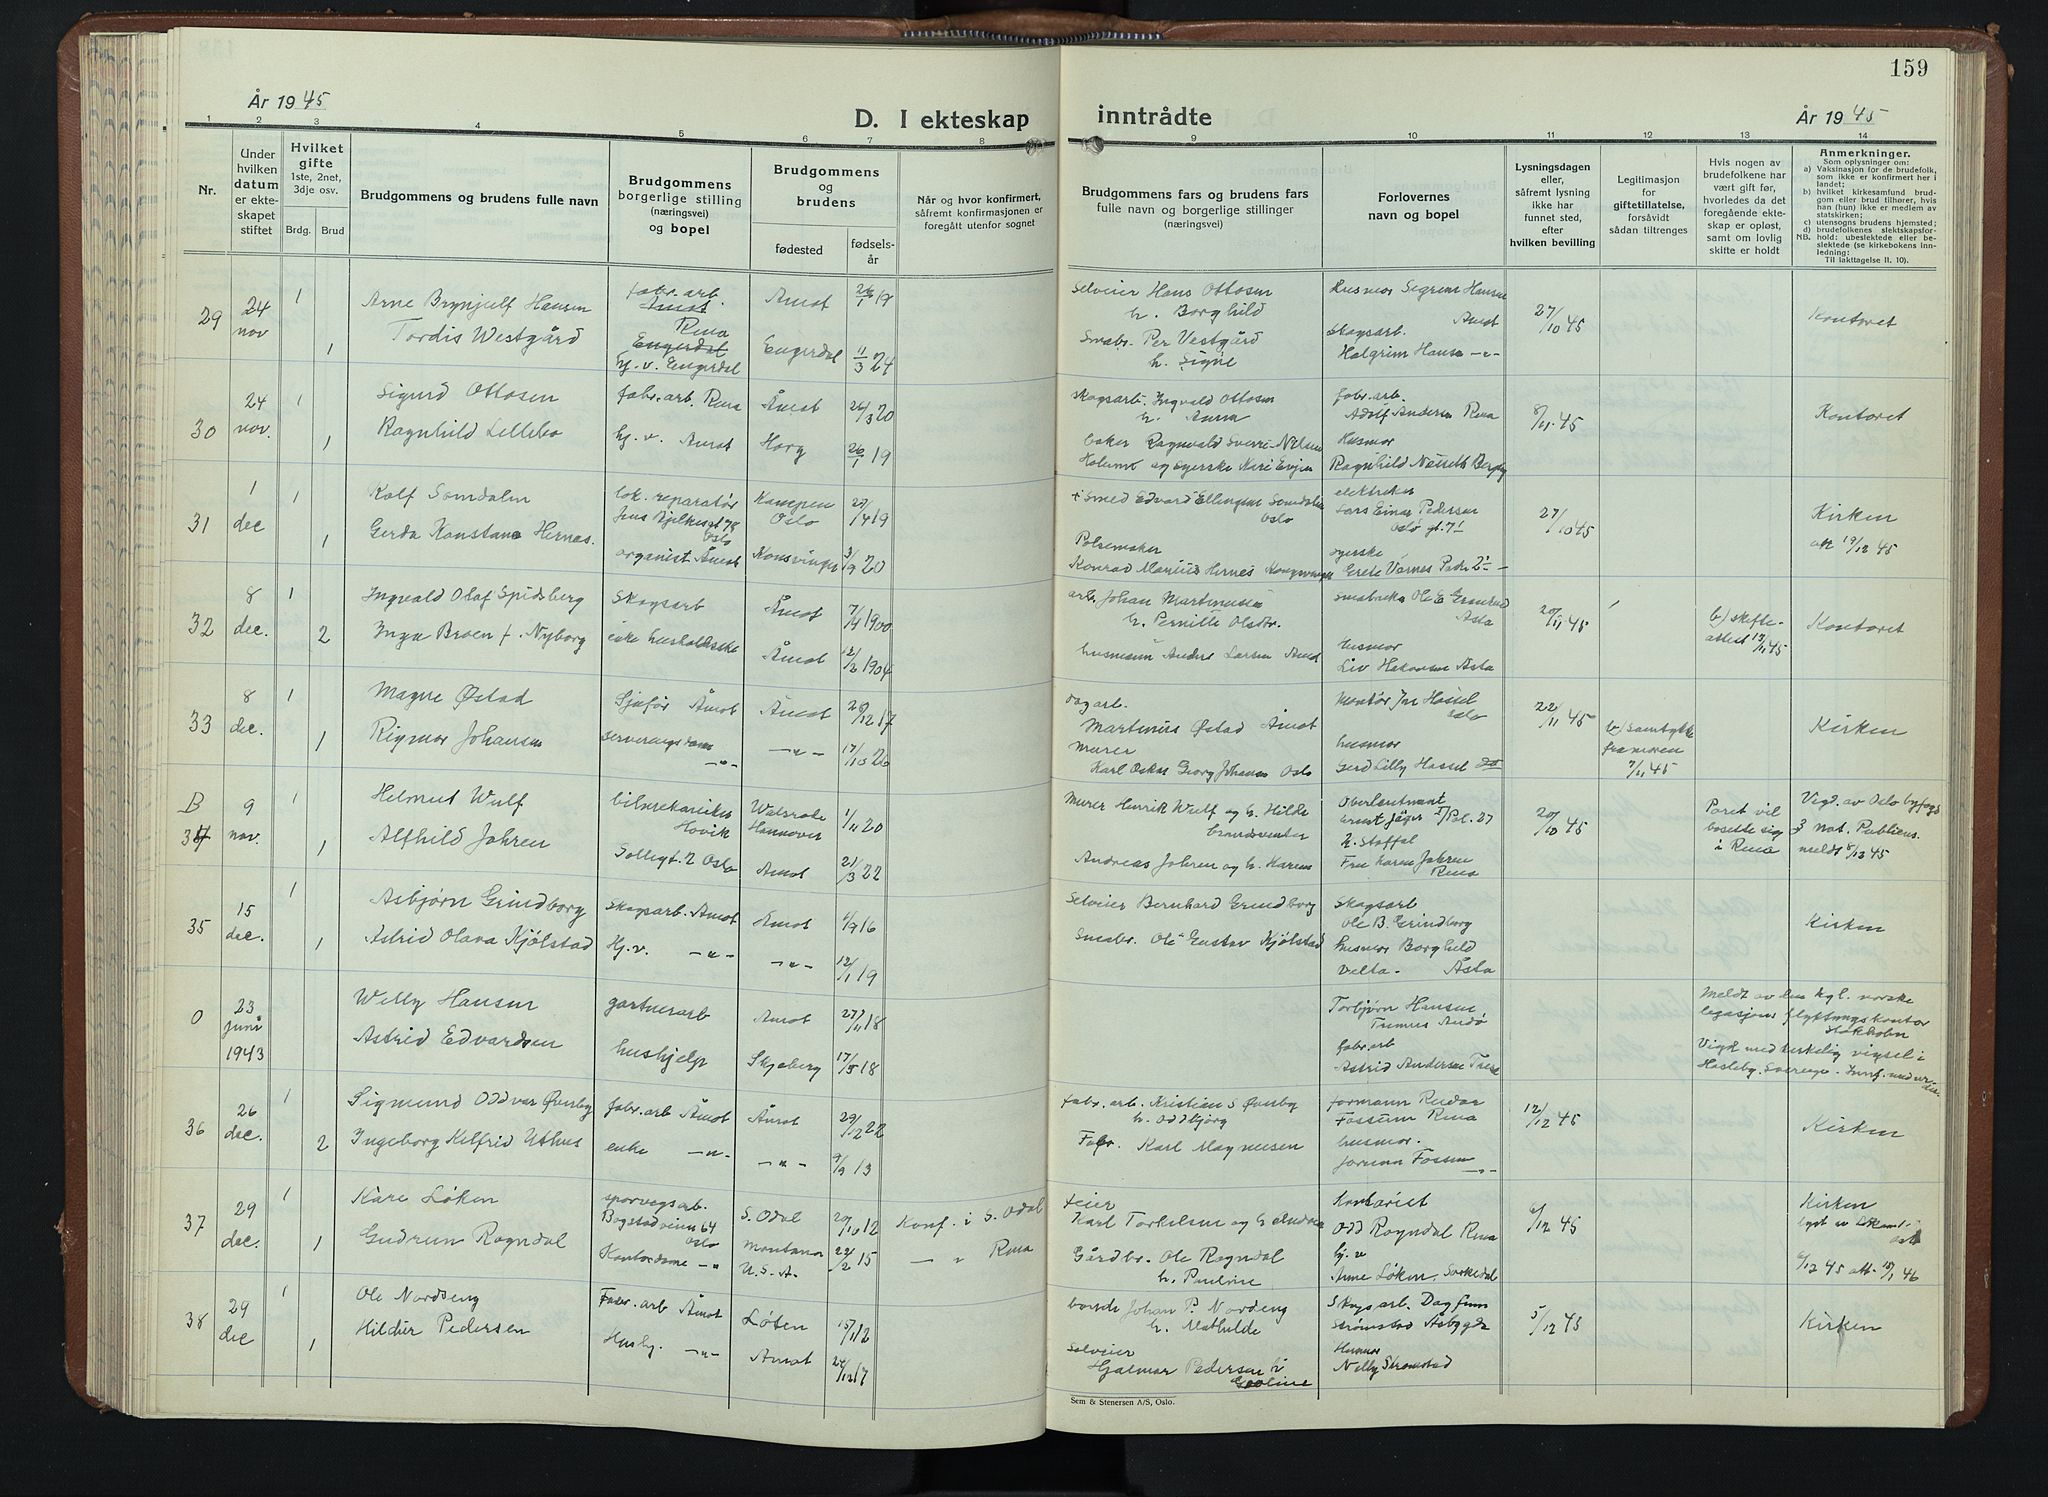 159
År 1945
D. I ekteskap inntrådte
År 1945
1 2 3 4 5 6 7 8 9 10 11 12 13 14
Nr.
Under hvilken datum er ekteskapet stiftet
Hvilket gifte 1ste, 2net, 3dje osv.
Brdg. Brud
Brudgommens og brudens fulle navn
Brudgommens borgerlige stilling (næringsvei) og bopel
Brudgommens og brudens
fødested
fødselsår
Når og hvor konfirmert, såfremt konfirmasjonen er foregått utenfor sognet
Brudgommens fars og brudens fars fulle navn og borgerlige stillinger (næringsvei)
Forlovernes navn og bopel
Lysningsdagen eller, såfremt lysning ikke har funnet sted, efter hvilken bevilling
Legitimasjon for giftetillatelse, forsåvidt sådan tiltrenges
Hvis nogen av brudefolkene har vært gift før, hvorledes da det foregående ekteskap er opløst, samt om lovlig skifte er holdt
Anmerkninger.
Som oplysninger om:
a) Vaksinasjon for de brudefolk, som ikke er konfirmert her i landet;
b) hvilket kirkesamfund brudgom eller brud tilhører, hvis han (hun) ikke er medlem av statskirken;
c) utensogns brudens hjemsted;
d) brudefolkenes slektskapsforhold: ubeslektede eller beslektede (se kirkebokens innledning;
NB. Til iakttagelse II. 10).
29 24 nov 1 Arne Brynjulf Hansen fabr. arb. Åmot Rena Åmot 26/1 19
1 Tordis Westgård Engerdal hj. v. Engerdal Engerdal 11/3 24
Selveier Hans Ottosen h. Borghild
Småbr. Per Vestgård h. Signe
Husmor Sigrun Hansen Åmot
Skogsarb. Halgrim Hansen -"-
27/10 45 Kontoret
30 24 nov. 1 Sigurd Ottosen fabr. arb. Rena Åmot 24/3 20
1 Ragnhild Lillebo hj. v. Åmot Horg 26/1 19
skogsarb. Ingvald Ottosen h. Anna
baker Ragnvald Sverre Nilsen
fabr. arb. Adolf Andersen Rena
Husmor Ragnhild
8/11 45 Kontoret
31 1 dec 1 Rolf Somdalen lok. reparatør Oslo Kampen Oslo 27/4 19
1 Gerda Konstanse Hernes. organist Åmot Kongsvinger 3/9 20
+ Smed Edvard Ellingsen Somdalen Oslo
Pølsemaker Konrad Marius Hernes Kongsvinger
elektriker Lars Einar Pedersen Oslo gt. 71
27/10 45 Kirken att 19/12 45
32 8 dec. 1 Ingvald Olaf Spidsberg Skogsarb Åmot 7/4 1900
2 Inga Broen f. Nyborg enke husholderske Åmot 12/2 1904
arb. Johan Martinussen h. Pernille Olsdtr.
husmann Anders Larsen Åmot
Småbruker Ole E Grønlund Åsta
husmor Liv Hakonsen Åsta
20/11 45 b) skifteattest 17/11 45 Kontoret
33 8 dec. 1 Magne Østad Sjåfør Åmot Åmot 20/12 17
1 Rigmor Johansen serveringsdame -"- -"- 17/10 26
dagarb. Martinus Østad Åmot
Murer Karl Oskar Georg Johansen Oslo
Montør Hassel Oslo
husmor Gerd Lilly Hassel do
22/11 45 b) samtykke fra moren 7/11 45 Kirken
B 34 9 nov. 1 Helmut Wulf bilmekaniker Høvik Walsrode Hannover 1/11 20
1 Alfhild Johren Solligt. 2 Oslo Åmot 21/3 22
Murer Henrik Wulf og h. Hilde
Andreas Johren og h. Karen
Oberleutnant Ernst Jäger
Fru Karen Johren Rena
20/10 45 Paret vil bosette sig i Rena Vigd. av Oslo byfogd Not. Publicus. meldt 8/12 45
35 15 dec. 1 Asbjørn Grindborg Skogsarb. Åmot Åmot 4/9 16
1 Astrid Olava Kjølstad Hj. v. -"- -"- 12/1 19
Selveier Bernhard Grindborg
Småbr. Ole Gustav Kjølstad
Skogsarb Ole B. Grindborg
husmor Borghild Velta - Åsta
Kirken
0 23 juni 1943 Willy Hansen gartnerarb Åmot 27/11 18
Astrid Edvardsen hushjelp Skjeberg 17/5 18
Torbjørn Hansen
fabr. arb Astrid Andersen
Meldt av den kgl. norske legasjons flyttningskontor Stokholm
Vigd med kirkelig vigsel i Hässleby. Sverige.
36 26 dec. 1 Sigmund Oddvar Øverby fabr. arb Åmot Åmot 29/12 22
2 Ingeborg Kelfrid Uthus enke -"- -"- 9/9 13
fabr. arb. Kristian S Øverby h. Oddbjørg
Fabr. Karl Magnussen
formann Reidar Fossum Rena
husmor. Jorunn Fossum -"-
12/12 45 Kirken
37 29 dec. 1 Kåre Løken sporvogsarb. Bogstadveien 64 Oslo S. Odal 20/10 12 Konf. i S. Odal
1 Gudrun Rogndal Kontordame -"- Montana U.S.A. 22/2 15 — " Rena
feier Karl Torkelsen og h Andrea
Gårdbr. Ole Rogndal h. Pauline
Kontorist Odd Rogndal Rena
hj. v Anne Løken, Sørkedal
6/12 45 Kirken
6/12 45 att. 15/1 46
38 29 dec 1 Ole Nordseng Fabr. arb Åmot Løten 15/11 12
1 Hildur Pedersen Husby. -"- Åmot 24/12 17
bonde Johan P. Nordeng h. Mathilde
Selveier Hjalmar Pedersen h Gooline
Skogsarb. Dagfinn Strømstad Åsbygda
Husmor Nelly Strømstad
5/12 45 Kirken
Sem & Stenersen A/S, Oslo.